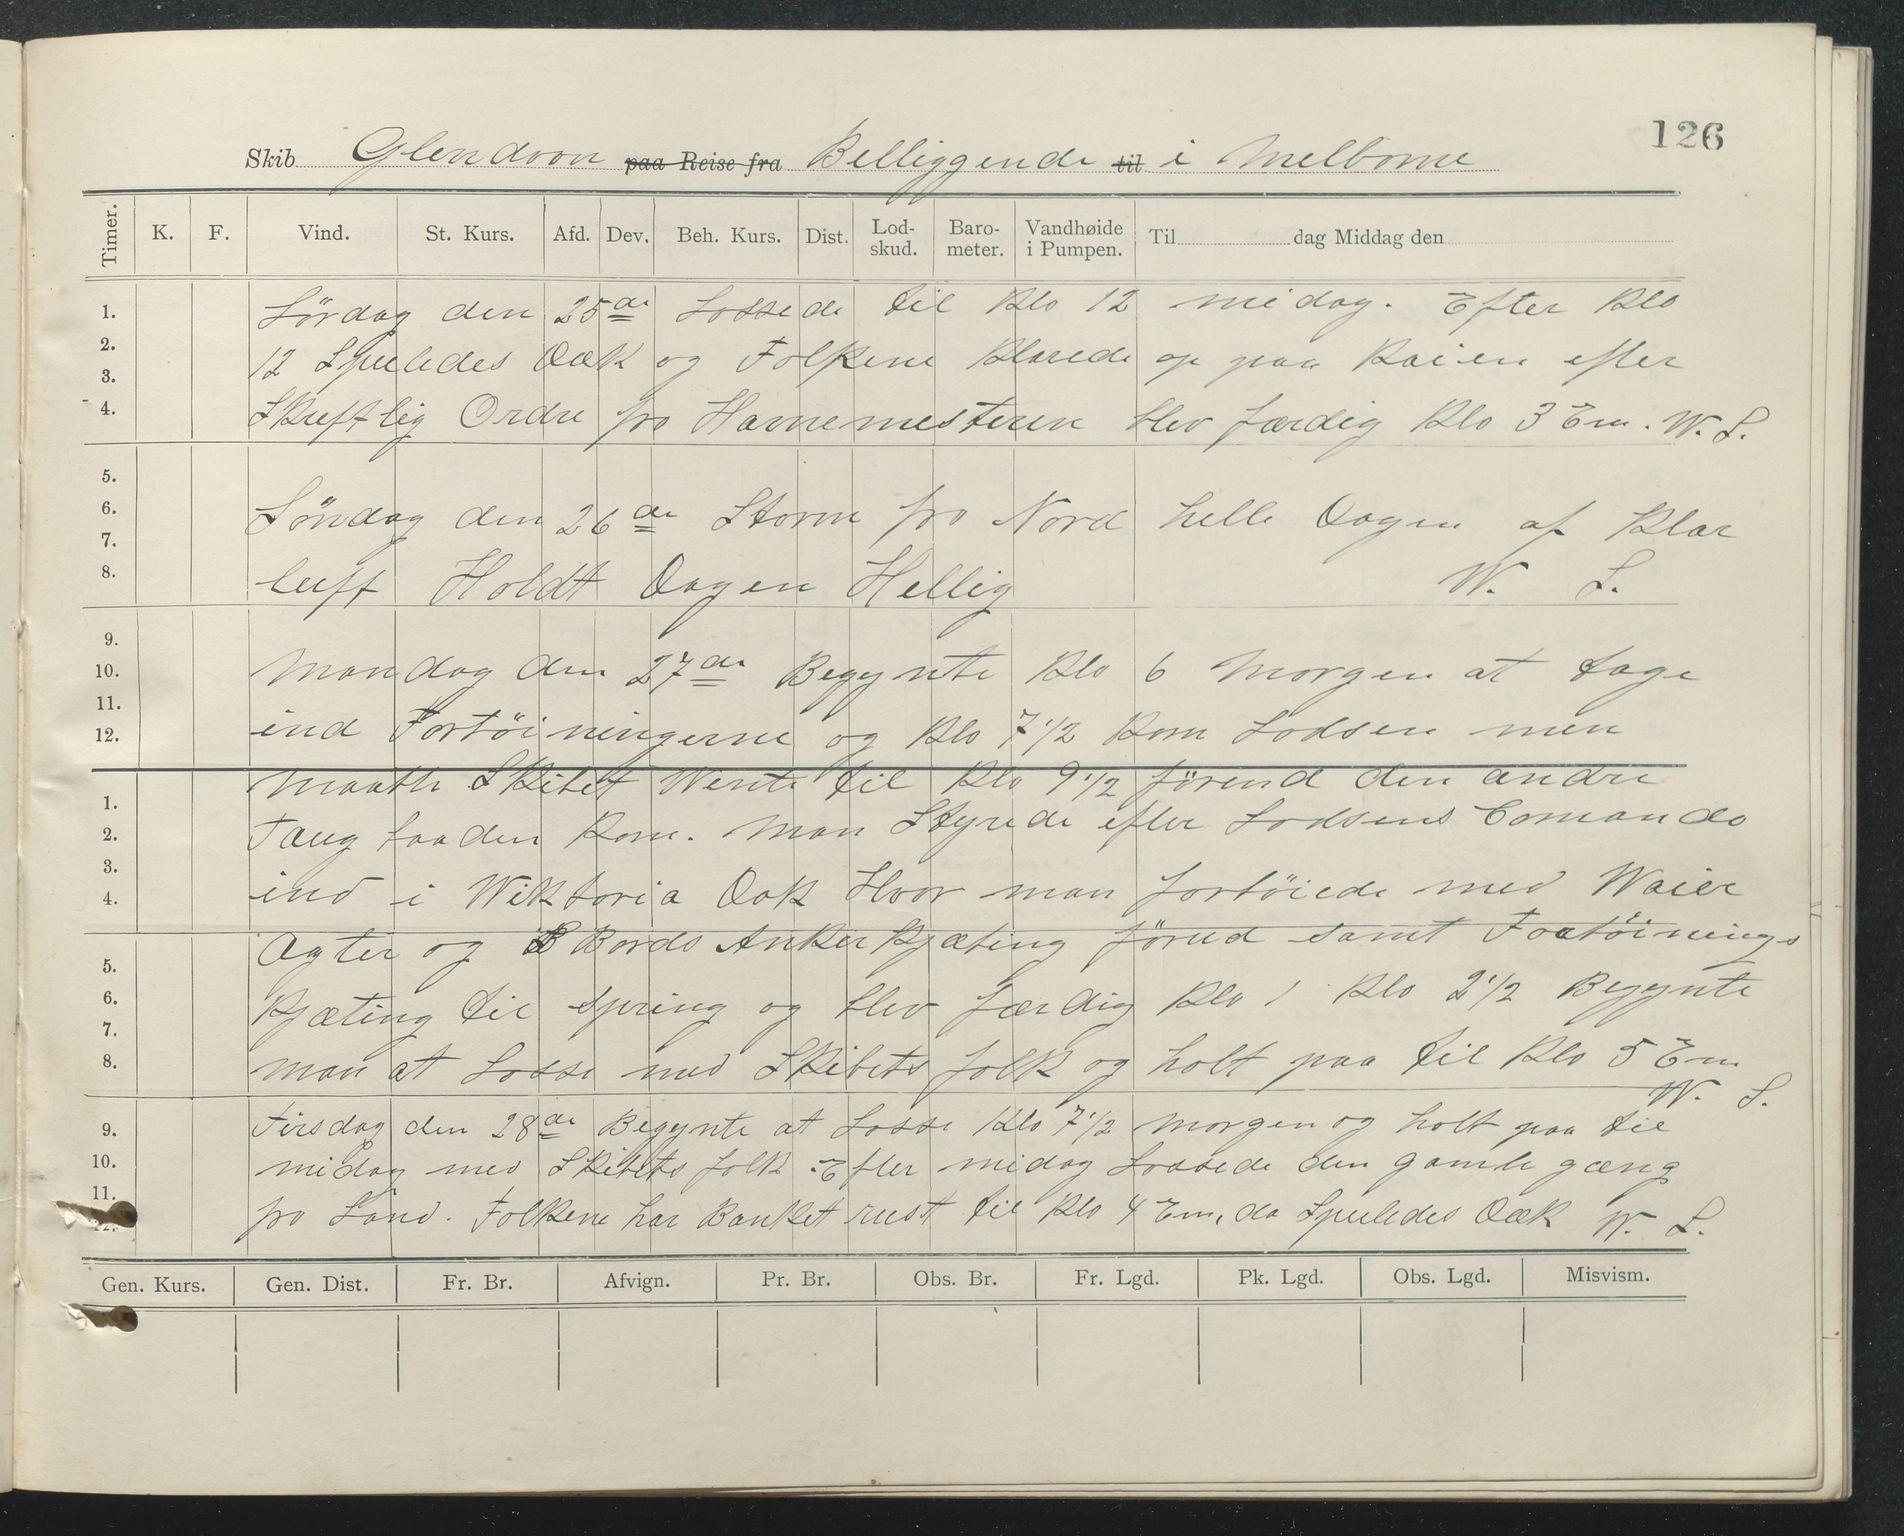 126
Skib Glendoon paa Reise fra Belliggende til i Melborne
Timer. K. F. Vind. St. Kurs. Afd. Dev. Beh. Kurs. Dist. Lod-skud. Baro-meter. Vandhøide i Pumpen. Til dag Middag den
1. Lørdag den 25de Lossede til Klo 12 midag. Efter Klo
2. 12 Spuledes Dæk og Folkene Klarede op paa Kaien efter
3.
4. Skriftlig Ordre fra Havnemesteren blev færdig Klo 3 Em. W. L.
5.
6. Söndag den 26de Storm fra Nord helle Dagen af Klar
7.
8. luft Holdt Dagen Hellig W. L.
9.
10. Mandag den 27de Begynte Klo 6 Morgen at tage
11.
12. ind Fortöiningerne og Klo 7 1/2 Kom Lodsen men
maatte Skibet Wente til Klo 9 1/2 förend den andre
1.
2. Taugbaaden Kom. Man Styrede efter Lodsens Comando
3.
4. ind i Wiktoria Dok Hvor man fortöiede med Waier
Agter og B Bords Anker Kjæting forud samt Fortöinings
5.
6. Kjæting til Spring og blev færdig Klo 1 Klo 2 1/2 Begynte
7.
8. man at Losse med Skibets folk og holt paa til Klo 5 Em
W. L.
9. Tirsdag den 28de Begynte at Losse Klo 7 1/2 Morgen og holt paa til
10. midag med Skibets folk. Efter midag Lossede den gamle gæng
11.
12. fra Land. Folkene har Banket rust til Klo 4 Em, da Spuledes Dæk W. L.
Gen. Kurs. Gen. Dist. Fr. Br. Afvign. Pr. Br. Obs. Br. Fr. Lgd. Pk. Lgd. Obs. Lgd. Misvism.